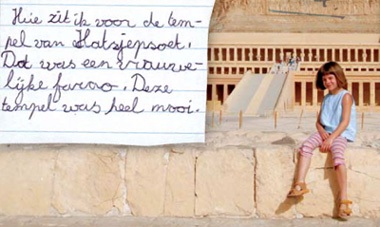 Hie zit ik voor de tem-
pel van Hatsjepsoet.
Dat was een vrouwe-
lijke farao. Deze
tempel was heel mooi.